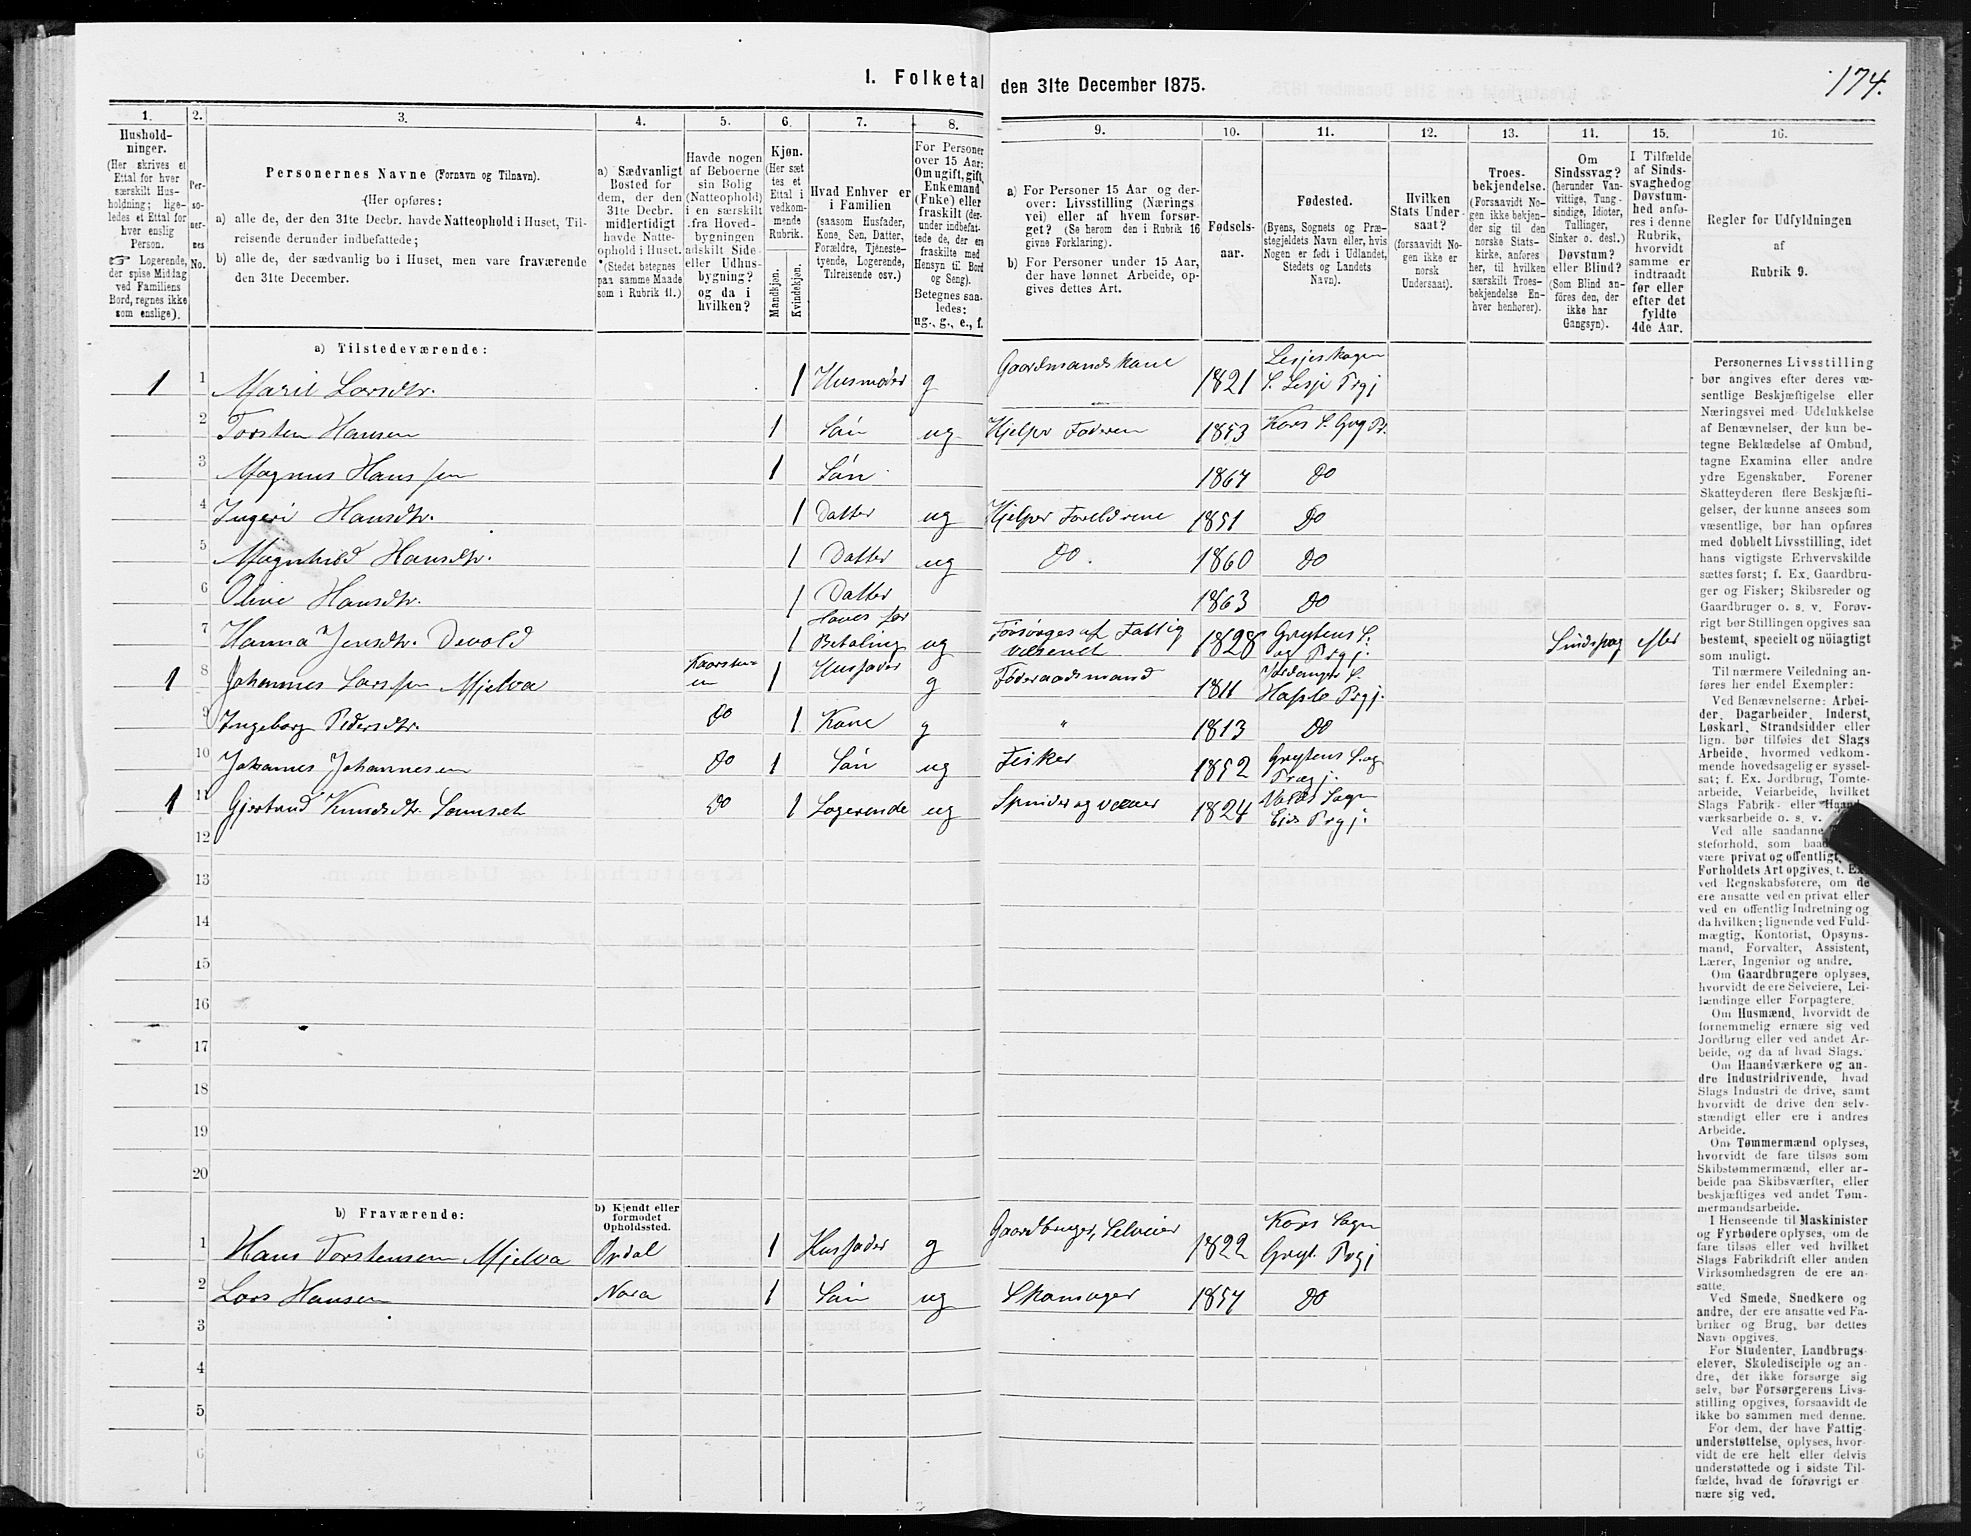 174.
1. Folketal den 31te December 1875.
1. 2. 3. 4. 5. 6. 7. 8. 9. 10. 11. 12. 13. 14. 15. 16.
Hushold-
ninger.
(Her skrives et
Ettal for hver
særskilt Hus-
holdning; lige-
ledes et Ettal for
hver enslig
Person.
☞ Logerende,
der spise Middag
ved Familiens
Bord, regnes ikke
som enslige).
Per-
so-
ner-
nes
No.
Personernes Navne (Fornavn og Tilnavn).
(Her opføres:
a) alle de, der den 31te Decbr. havde Natteophold i Huset, Til-
reisende derunder indbefattede;
b) alle de, der sædvanlig bo i Huset, men vare fraværende
den 31te December.
a) Sædvanligt
Bosted for
dem, der den
31te Decbr.
midlertidigt
havde Natte-
ophold i Huset.
(Stedet betegnes
paa samme Maade
som i Rubrik 11.)
Havde nogen
af Beboerne
sin Bolig
(Natteophold)
i en særskilt
fra Hoved-
bygningen
adskilt Side-
eller Udhus-
bygning?
og da i
hvilken?
Kjøn.
(Her sæt
tes et
Ettal i
vedkom-
mende
Rubrik.
Mandkjøn.
Kvindekjøn.
Hvad Enhver er
i Familien
(saasom Husfader,
Kone, Søn, Datter,
Forældre, Tjeneste-
tyende, Logerende,
Tilreisende osv.)
For Personer
over 15 Aar:
Om ugift, gift,
Enkemand
(Enke) eller
fraskilt (der-
under indbefat-
tede de, der ere
fraskilte med
Hensyn til Bord
og Seng).
Betegnes saa-
ledes:
ug., g., e., f.
a) For Personer 15 Aar og der-
over: Livsstilling (Nærings
vei) eller af hvem forsør-
get? (Se herom den i Rubrik 16
givne Forklaring).
b) For Personer under 15 Aar,
der have lønnet Arbeide, op-
gives dettes Art.
Fødsels-
aar.
Fødested.
(Byens, Sognets og Præ-
stegjeldets Navn eller, hvis
Nogen er født i Udlandet,
Stedets og Landets
Navn).
Hvilken
Stats Under-
saat?
(forsaavidt No-
gen ikke er
norsk
Undersaat).
Troes-
bekjendelse.
(Forsaavidt No-
gen ikke bekjen-
der sig til den
norske Stats-
kirke, anføres
her, til hvilken
særskilt Troes-
bekjendelse En-
hver henhører).
Om
Sindssvag?
(herunder Van-
vittige, Tung-
sindige, Idioter,
Tullinger,
Sinker o. desl.)
Døvstum?
eller Blind?
(Som Blind an-
føres den, der
ikke har
Gangsyn).
I Tilfælde
af Sinds-
svaghed og
Døvstum-
hed anfø-
res i denne
Rubrik,
hvorvidt
samme er
indtraadt
før eller
efter det
fyldte
4de Aar.
Regler for Udfyldningen
af
Rubrik 9.
a) Tilstedeværende:
1 1 Marit Larsdtr. 1 Husmoder g Gaardmandskone 1821 Lesjeskogen S. Lesje Prgj
2 Torsten Hansen 1 Søn ug Hjelper Faderen 1853 Kors S. Gryt Pr.
3 Magnus Hanssen 1 Søn 1867 Do
4 Ingeri Hansdtr. 1 Datter ug Hjelper Forældrene 1851 Do
5 Magnhild Hansdtr. 1 Datter ug Do. 1860 Do
6 Oline Hansdtr. 1 Datter 1863 Do
7 Hanna Jensdtr. Devold 1 Haves for Betaling ug Forsørges af Fattig væsenet 1828 Grytens S. og Prgj. Sindssvag efter
1 8 Johannes Larssen Mjelva 1 Husfader g Føderaadsmand 1811 Prgj.
9 Ingeborg Pedersdtr. Do 1 Kone g " 1813 Do
10 Johannes Johannesen Do 1 Søn ug Fisker 1852 Grytens S. og Prægj.
1 11 Gjertrud Knudsdtr. Do 1 Logerende ug Spinder og væver 1824 Sogn Eids Prgj.
12
13
14
15
16
17
18
19
20
b) Fraværende:
b) Kjendt eller
formodet
Opholdssted.
1 Hans Torstensen Mjelva Opdal 1 Husfader g Gaardbruger, Selveier 1822 Kors Sogn Gryt. Prgj
2 Lars Hansen Nora 1 Søn ug Skomager 1857 Do
3
4
5
6
Personernes Livsstilling
bør angives efter deres væ-
sentlige Beskjæftigelse eller
Næringsvei med Udelukkelse
af Benævnelser, der kun be-
tegne Beklædelse af Ombud,
tagne Examina eller andre
ydre Egenskaber. Forener
Skatteyderen flere Beskjæfti-
gelser, der kunne ansees som
væsentlige, bør han opføres
med dobbelt Livsstilling, idet
hans vigtigste Erhvervskilde
sættes først; f. Ex. Gaardbru-
ger og Fisker; Skibsreder og
Gaardbruger o. s. v. Forøv-
rigt bør Stillingen opgives saa
bestemt, specielt og nöiagtigt
som muligt.
Til nærmere Veiledning an-
føres her endel Exempler:
Ved Benævnelserne: Arbei-
der, Dagarbeider, Inderst,
Løskarl, Strandsidder eller
lign. bør tilføies det Slags
Arbeide, hvormed vedkom-
mende hovedsagelig er syssel-
sat; f. Ex. Jordbrug, Tomte-
arbeide, Veiarbeide, hvilket
Slags Fabrik- eller Haand-
værksarbeide o. s. v.
Ved alle saadanne
steforhold, som baa
være privat og offentligt,
Forholdets Art opgives, t. Ex.
ved Regnskabsførere, om de
ere ansatte ved en privat eller
ved en offentlig Indretning og
da hvilken; lignende ved Fuld-
mægtig, Kontorist, Opsyns-
mand, Forvalter, Assistent,
Lærer, Ingeniør og andre.
Om Gaardbrugere oplyses,
hvorvidt de ere Selveiere, Lei-
lændinge eller Forpagtere.
Om Husmænd, hvorvidt de
fornemmelig ernære sig ved
Jordbrug eller ved andet Ar-
beide, og da af hvad Slags.
Om Haandværkere og an-
dre Industridrivende, hvad
Slags Industri de drive, samt
hvorvidt de drive den selv-
stændigt eller ere i andres
Arbeide.
Om Tømmermænd oplyses,
hvorvidt de fare tilsøs som
Skibstømmermænd, eller ar-
beide paa Skibsværfter, eller
beskjæftiges ved andet Tøm-
mermandsarbeide.
I Henseende til Maskinister
og Fyrbødere oplyses, om de
fare tilsøs eller ved hvilket
Slags Fabrikdrift eller anden
Virksomhedsgren de ere an-
satte.
Ved Smede, Snedkere og
andre, der ere ansatte ved Fa-
briker og Brug, bør dettes
Navn opgives.
For Studenter, Landbrugs-
elever, Skoledisciple og an-
dre, der ikke forsørge sig
selv, bør Forsørgerens Livs-
stilling opgives, forsaavidt de
ikke bo sammen med denne.
For dem, der have Fattig-
understøttelse, oplyses, hvor-
vidt de ere helt eller delvis
understøttede og i sidste Til-
fælde, hvad de forøvrigt er-
nære sig ved.